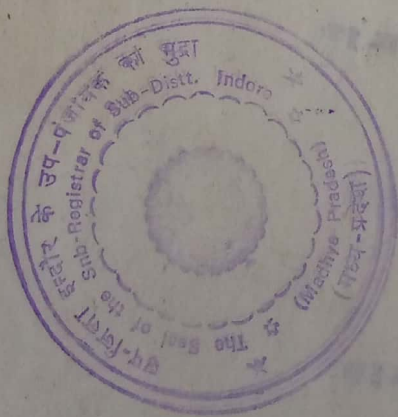 उप-जिला इन्दौर के उप-पंजीयक की मुद्रा
(मध्य-प्रदेश)
The Seal of the Snb-Registrar of Sub-Distt. Indore
(Madhya Pradesh)